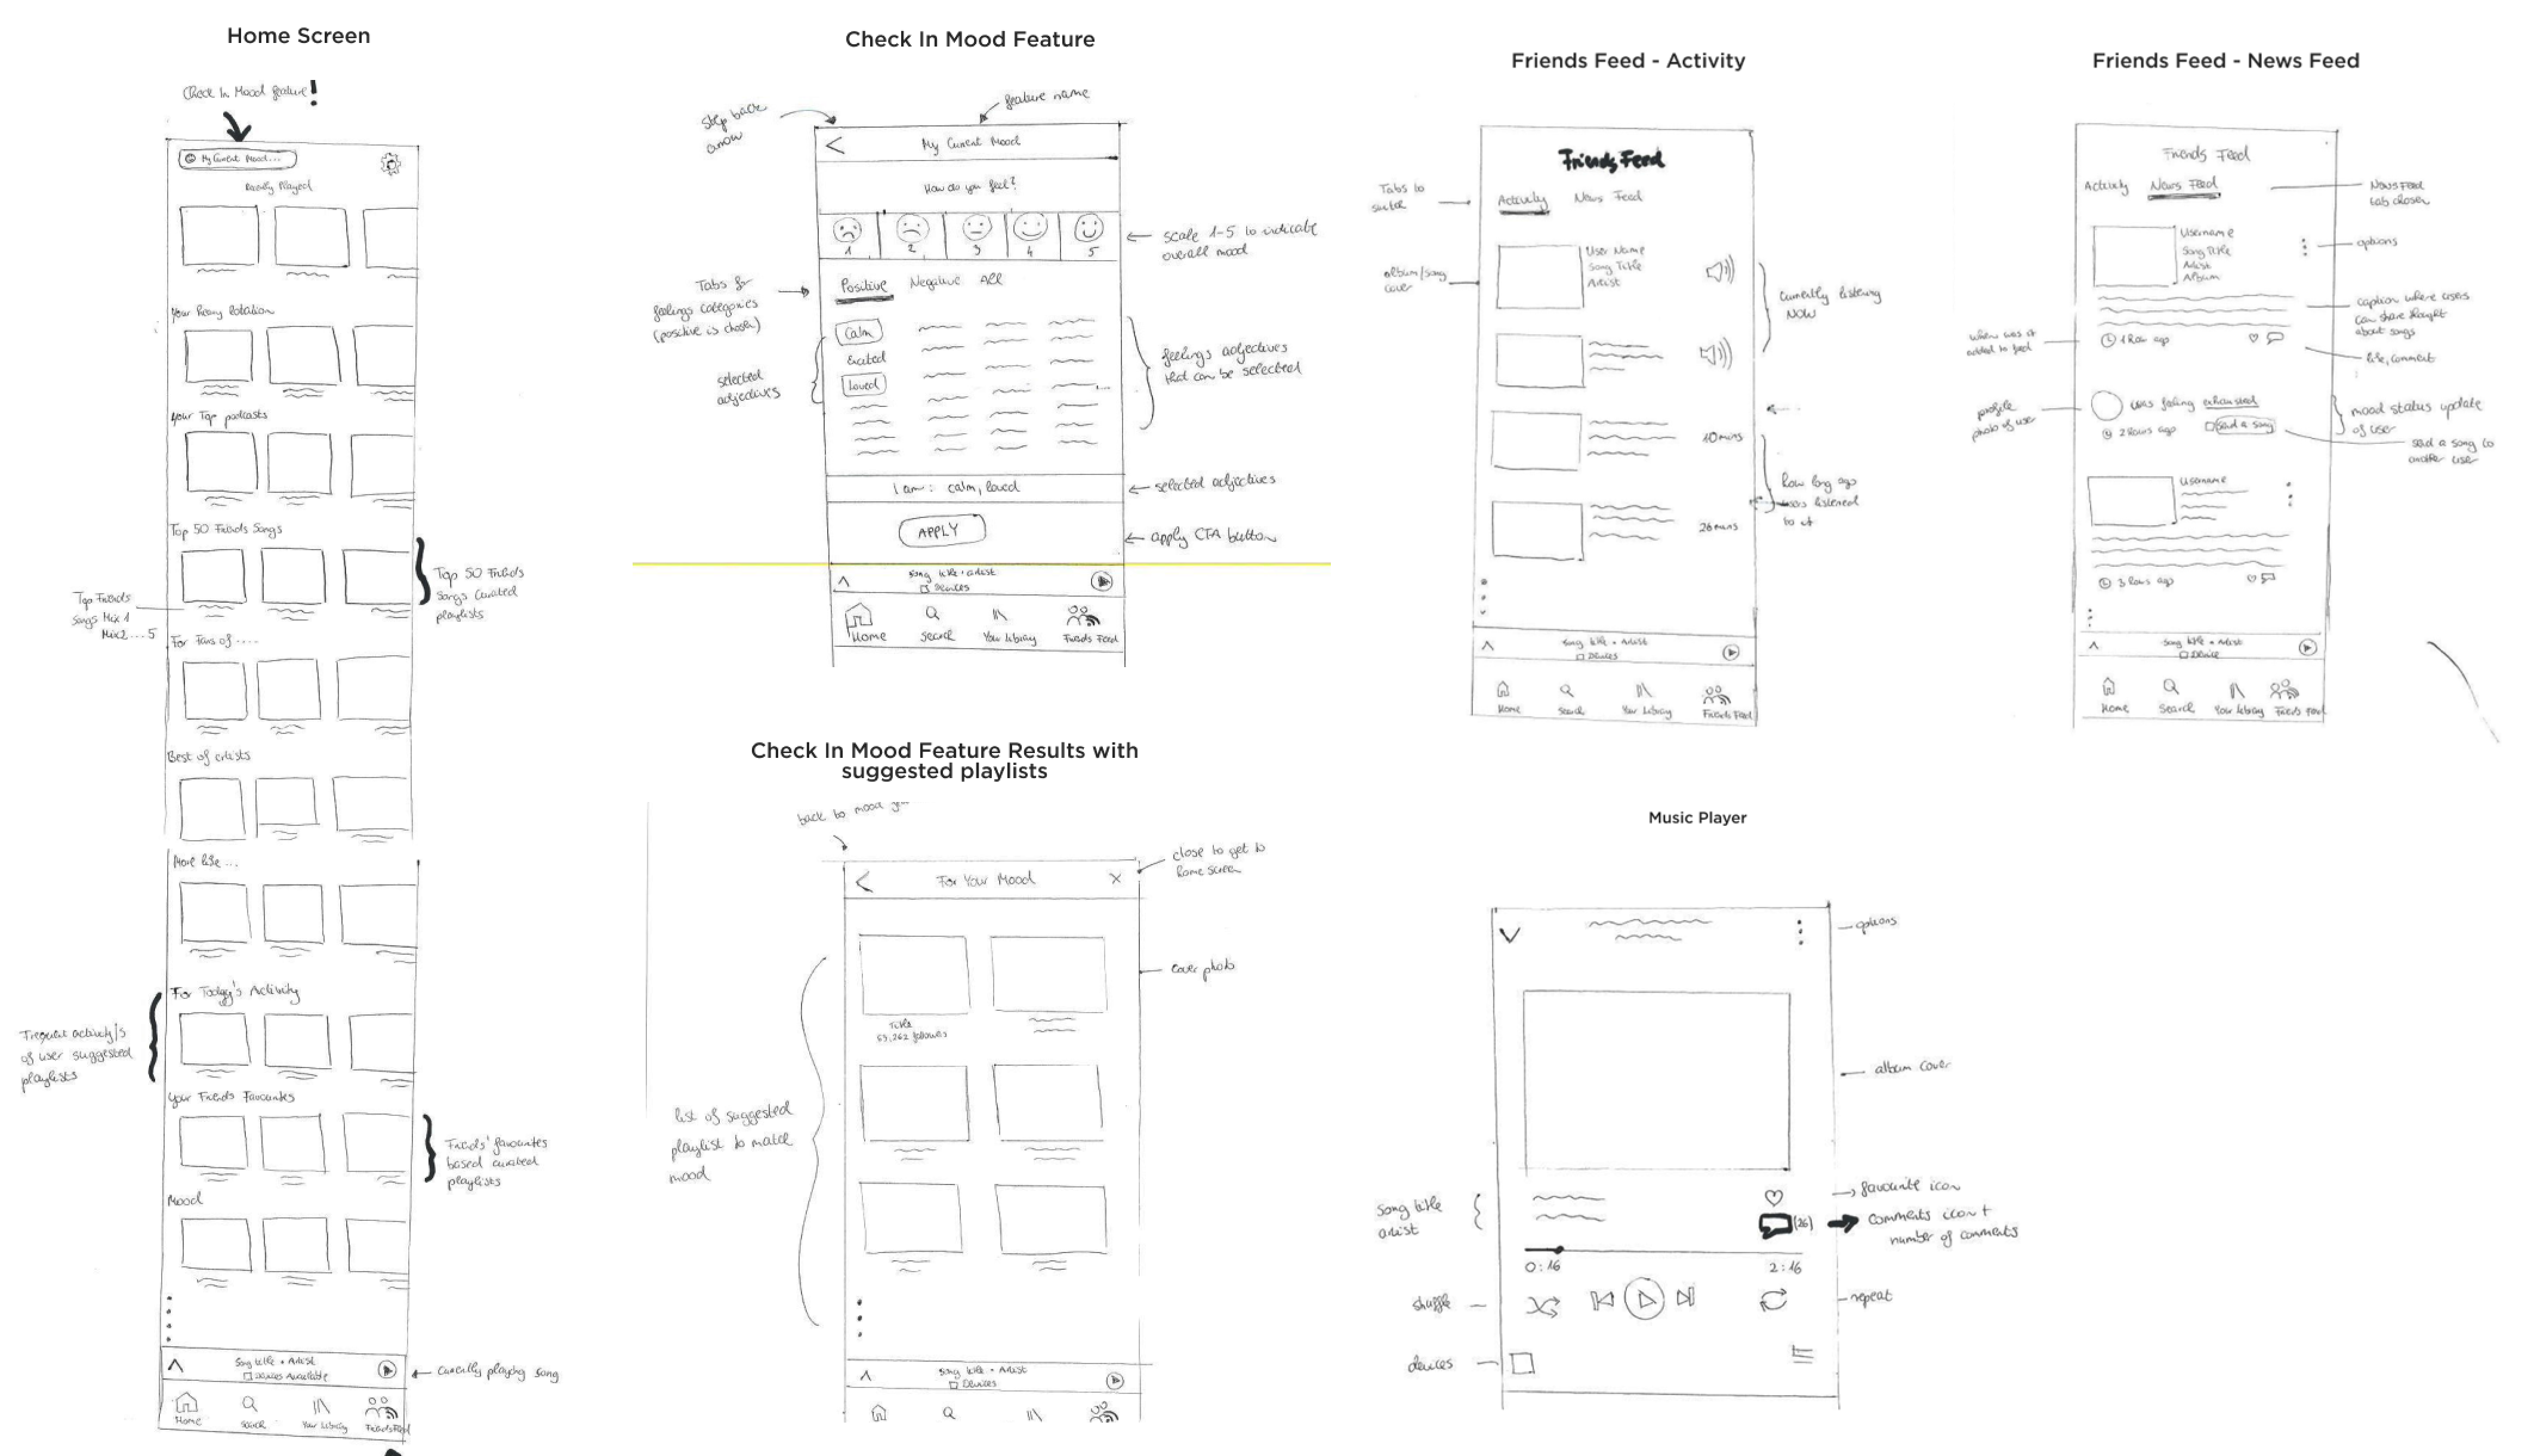 Home Screen
Check In Mood feature!
My Current Mood...
Recently Played
Your heavy Rotation
Your Top podcasts
Top 50 Friends Songs
Top 50 Friends
Songs Curated
playlists
Top Friends
Songs Mix 1
Mix 2 ... 5
For Fans of ....
Best of artists
More like ...
For Today's Activity
Frequent activity/s
of user suggested
playlists
Your Friends Favourites
Friends' favourites
based curated
playlists
Mood
Song title • Artist
Devices Available
currently playing song
Home
Search
Your Library
Friends Feed
Check In Mood Feature
step back
arrow
feature name
My Current Mood
How do you feel?
1 2 3 4 5
scale 1-5 to indicate
overall mood
Tabs for
feelings categories
(positive is chosen)
Positive Negative All
Calm
Excited
Loved
selected
adjectives
feelings adjectives
that can be selected
I am: calm, loved
selected adjectives
APPLY
apply CTA button
Song title • artist
Devices
Home
Search
Your Library
Friends Feed
Check In Mood Feature Results with
suggested playlists
back to mood
close to get to
home screen
For Your Mood
X
cover photo
Title
53,262 followers
list of suggested
playlist to match
mood
Song title • Artist
Devices
Friends Feed - Activity
Friends Feed
Tabs to
switch
Activity News Feed
album/song
cover
User Name
Song Title
Artist
currently listening
NOW
10 mins
how long ago
users listened
to it
26 mins
Song title • Artist
Devices
Home
Search
Your Library
Friends Feed
Friends Feed - News Feed
Friends Feed
Activity News Feed
News Feed
tab chosen
Username
Song Title
Artist
Album
options
caption where users
can share thought
about songs
when was it
added to feed
1 hour ago
like, comment
profile
photo of user
was feeling exhausted
2 hours ago
Send a song
mood status update
of user
send a song to
another user
Username
3 hours ago
Song title • Artist
Device
Home
Search
Your Library
Friends Feed
Music Player
options
album cover
song title
artist
favourite icon
(26)
comments icon +
number of comments
0:16
2:16
shuffle
repeat
devices